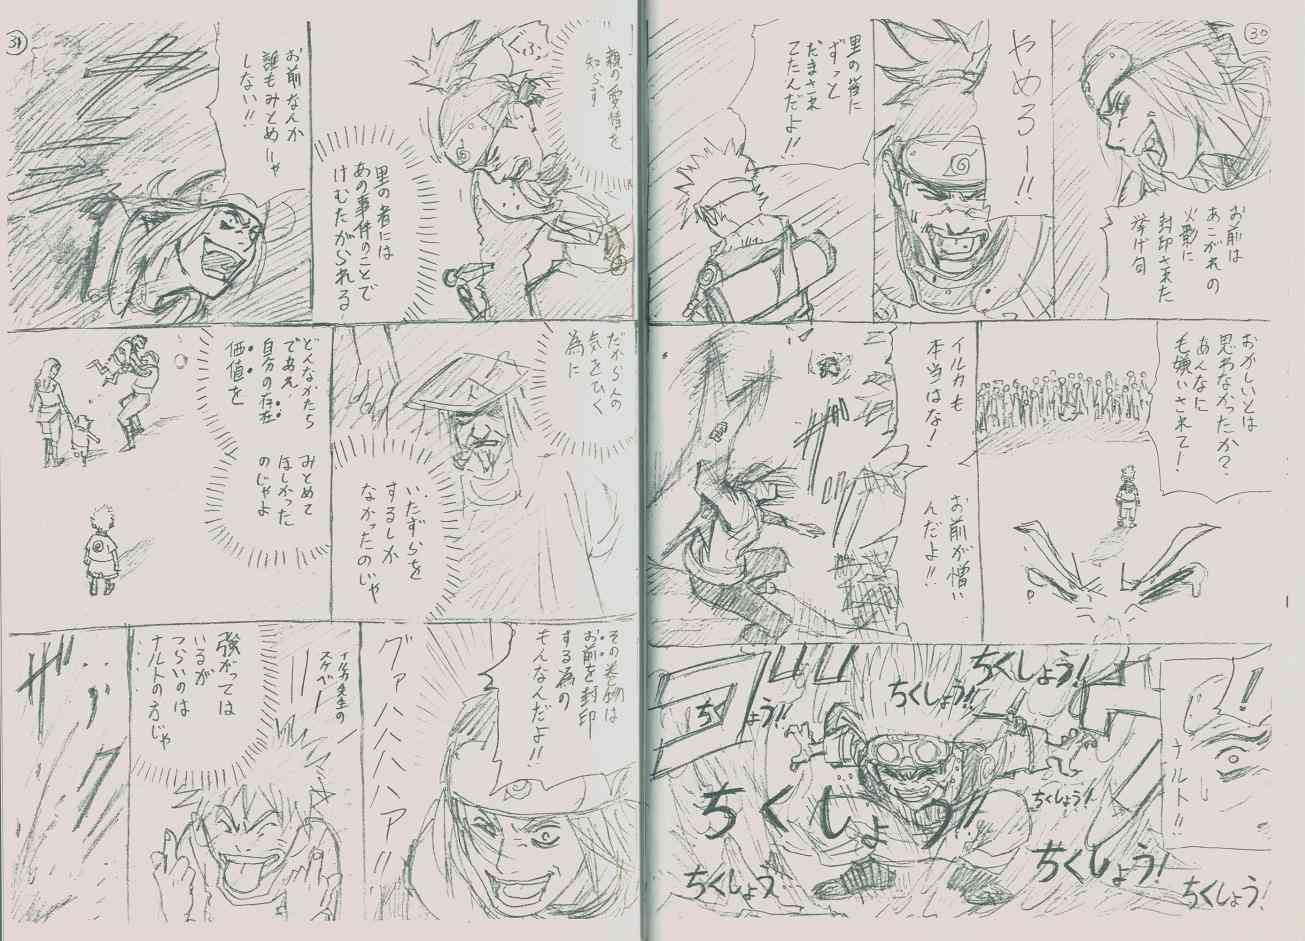 30
お前は
あこがれの
火影に
封印された
挙げ句
やめろー!!
里の皆に
ずっと
だまされ
てたんだよ!!
おかしいとは
思わなかったか?
あんなに
毛嫌いされて!
イルカも
本当はな!
お前が憎い
んだよ!!
ナルト!!
ちくしょう!
ちくしょう!!
ちくしょう!!
ちくしょう!
ちくしょう!!
ちくしょう!
ちくしょう!
ちくしょう
31
親の愛情を
知らず
ぐふ
里の者には
あの事件のことで
けむたがられる
お前なんか
誰もみとめしゃ
しない!!
だから人の
気をひく
為に
いたずらを
するしか
なかったのじゃ
どんなかたち
であれ
自分の存在
価値を
みとめて
ほしかった
のじゃよ
その巻物は
お前を封印
する為の
もんなんだよ!!
グァハハハハァ!!
イルカ先生の
スケベー
強がっては
いるが
つらいのは
ナルトの方じゃ